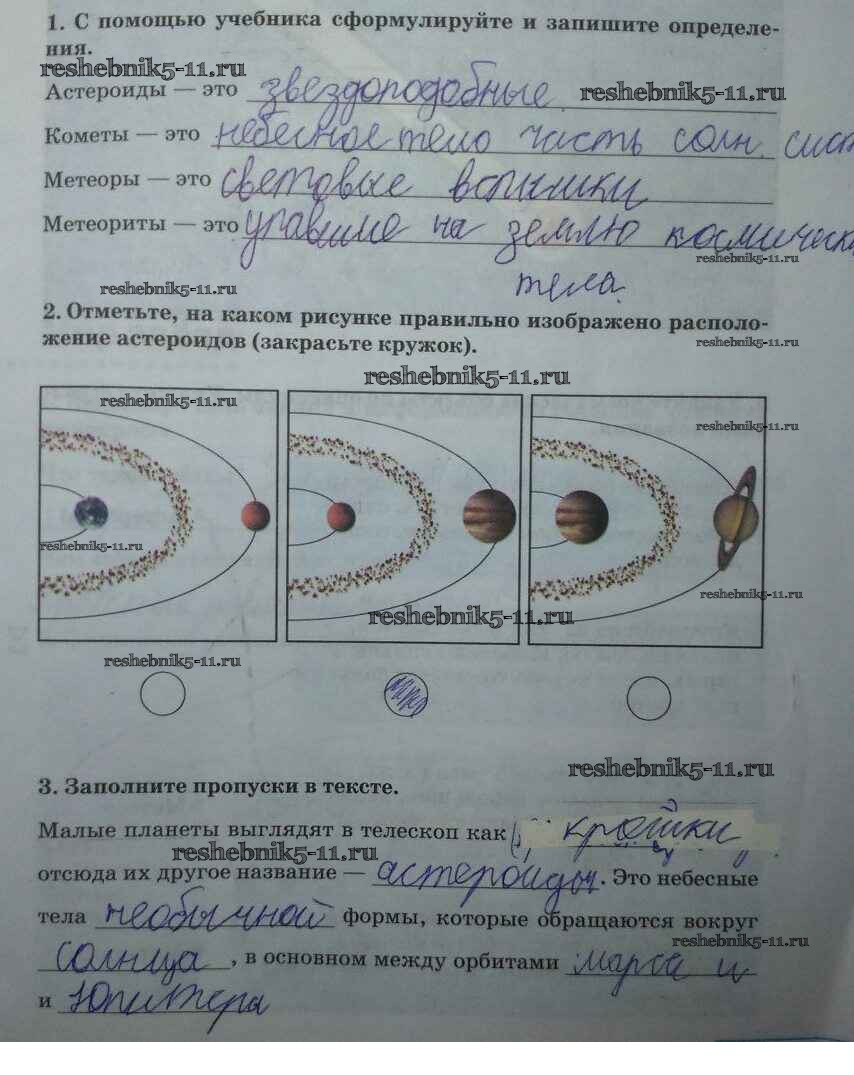 1. С помощью учебника сформулируйте и запишите определе-
ния.
reshebnik5-11.ru
Астероиды — это звездоподобные. reshebnik5-11.ru
Кометы — это небесное тело часть солн. сист
Метеоры — это световые вспышки
Метеориты — это упавшие на землю космическ
reshebnik5-11.ru
reshebnik5-11.ru тела.
2. Отметьте, на каком рисунке правильно изображено располо-
жение астероидов (закрасьте кружок). reshebnik5-11.ru
reshebnik5-11.ru
reshebnik5-11.ru
reshebnik5-11.ru
reshebnik5-11.ru
reshebnik5-11.ru
reshebnik5-11.ru
reshebnik5-11.ru
reshebnik5-11.ru
3. Заполните пропуски в тексте.
Малые планеты выглядят в телескоп как крошки
reshebnik5-11.ru
отсюда их другое название — астероиды. Это небесные
тела необычной формы, которые обращаются вокруг
reshebnik5-11.ru
солнца, в основном между орбитами марса и
и Юпитера